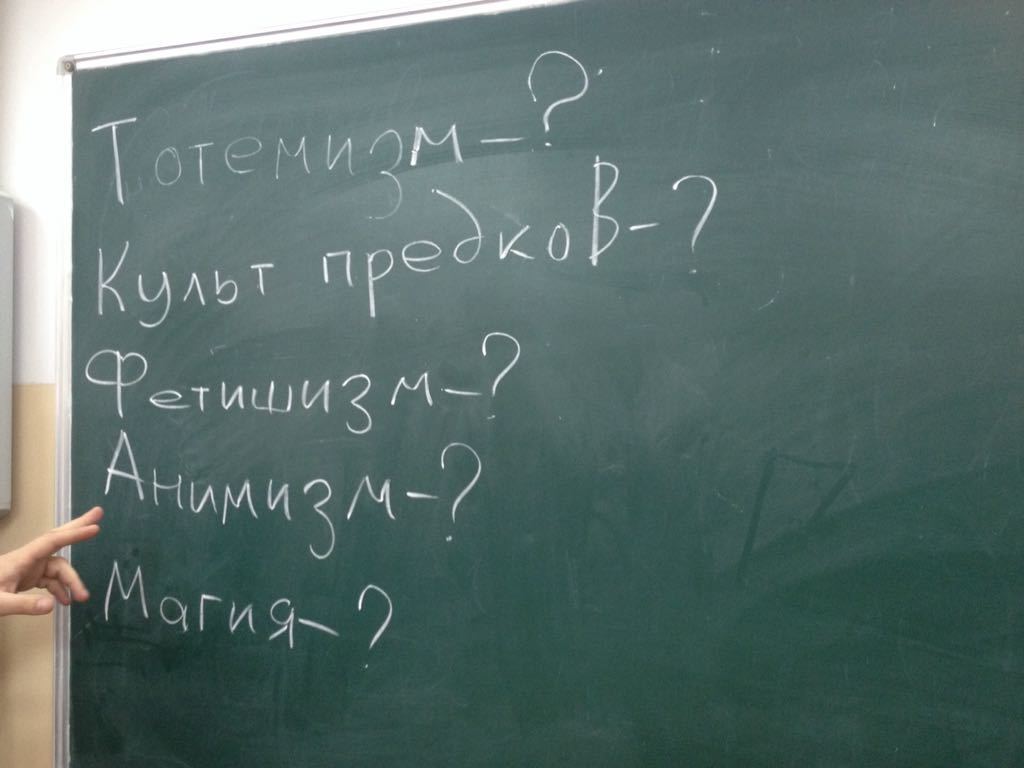 Тотемизм-?
Культ предков-?
Фетишизм-?
Анимизм-?
Магия-?